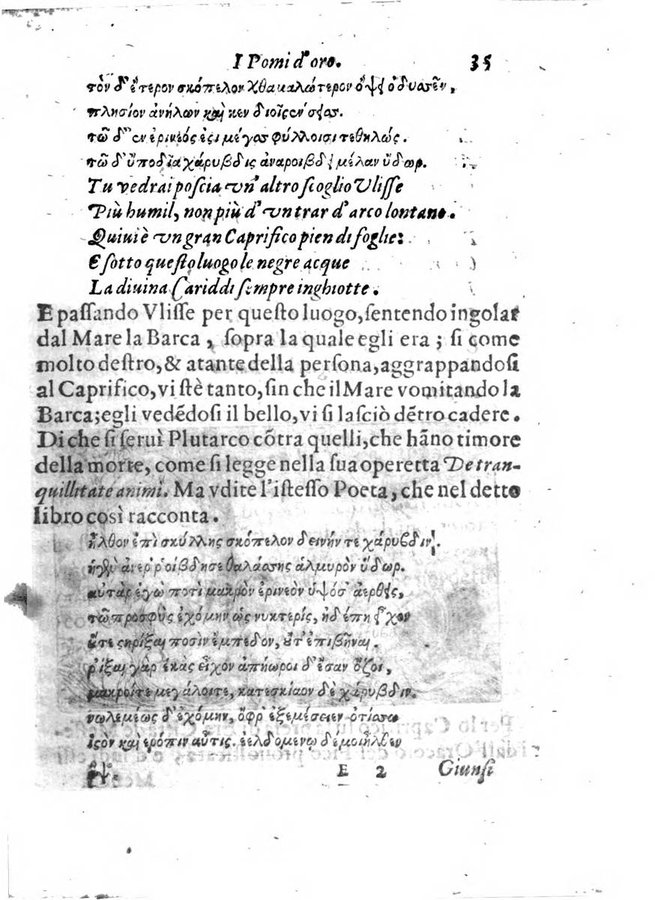 I Pomi d'oro. 35
τὸν δ' ἕτερον σκόπελον χθαμαλώτερον ὄψει ὀδυσσεῦ,
πλησίον ἀλλήλων καί κεν διοϊστεύσειας.
τῷ δ' ἐν ἐρινεός ἐστι μέγας φύλλοισι τεθηλώς.
τῷ δ' ὑπὸ δῖα χάρυβδις ἀναροιβδεῖ μέλαν ὕδωρ.
Tu vedrai poscia vn' altro scoglio Vlisse
Più humil, non più d' vn trar d' arco lontano.
Quiui è vn gran Caprifico pien di foglie:
E sotto questo luogo le negre acque
La diuina Cariddi sempre inghiotte.
E passando Vlisse per questo luogo, sentendo ingolar
dal Mare la Barca, sopra la quale egli era; si come
molto destro, & atante della persona, aggrappandosi
al Caprifico, vi stè tanto, sin che il Mare vomitando la
Barca; egli vedēdosi il bello, vi si lasciò dētro cadere.
Di che si seruì Plutarco cōtra quelli, che hāno timore
della morte, come si legge nella sua operetta De tran-
quillitate animi. Ma vdite l'istesso Poeta, che nel detto
libro così racconta.
ἦλθον ἐπὶ σκύλλης σκόπελον δεινήν τε χάρυβδιν.
ἡ μὲν ἀνερροίβδησε θαλάσσης ἁλμυρὸν ὕδωρ.
αὐτὰρ ἐγὼ ποτὶ μακρὸν ἐρινεὸν ὑψόσ' ἀερθείς,
τῷ προσφὺς ἐχόμην ὡς νυκτερίς, οὐδέ πη εἶχον
οὔτε στηρίξαι ποσὶν ἔμπεδον, οὔτ' ἐπιβῆναι.
ῥίζαι γὰρ ἑκὰς εἶχον ἀπήωροι δ' ἔσαν ὄζοι,
μακροί τε μεγάλοι τε, κατεσκίαον δὲ χάρυβδιν.
νωλεμέως δ' ἐχόμην, ὄφρ' ἐξεμέσειεν ὀπίσσω
ἱστὸν καὶ τρόπιν αὖτις. ἐελδομένῳ δέ μοι ἦλθεν
ὄψ.
E 2 Giunsi